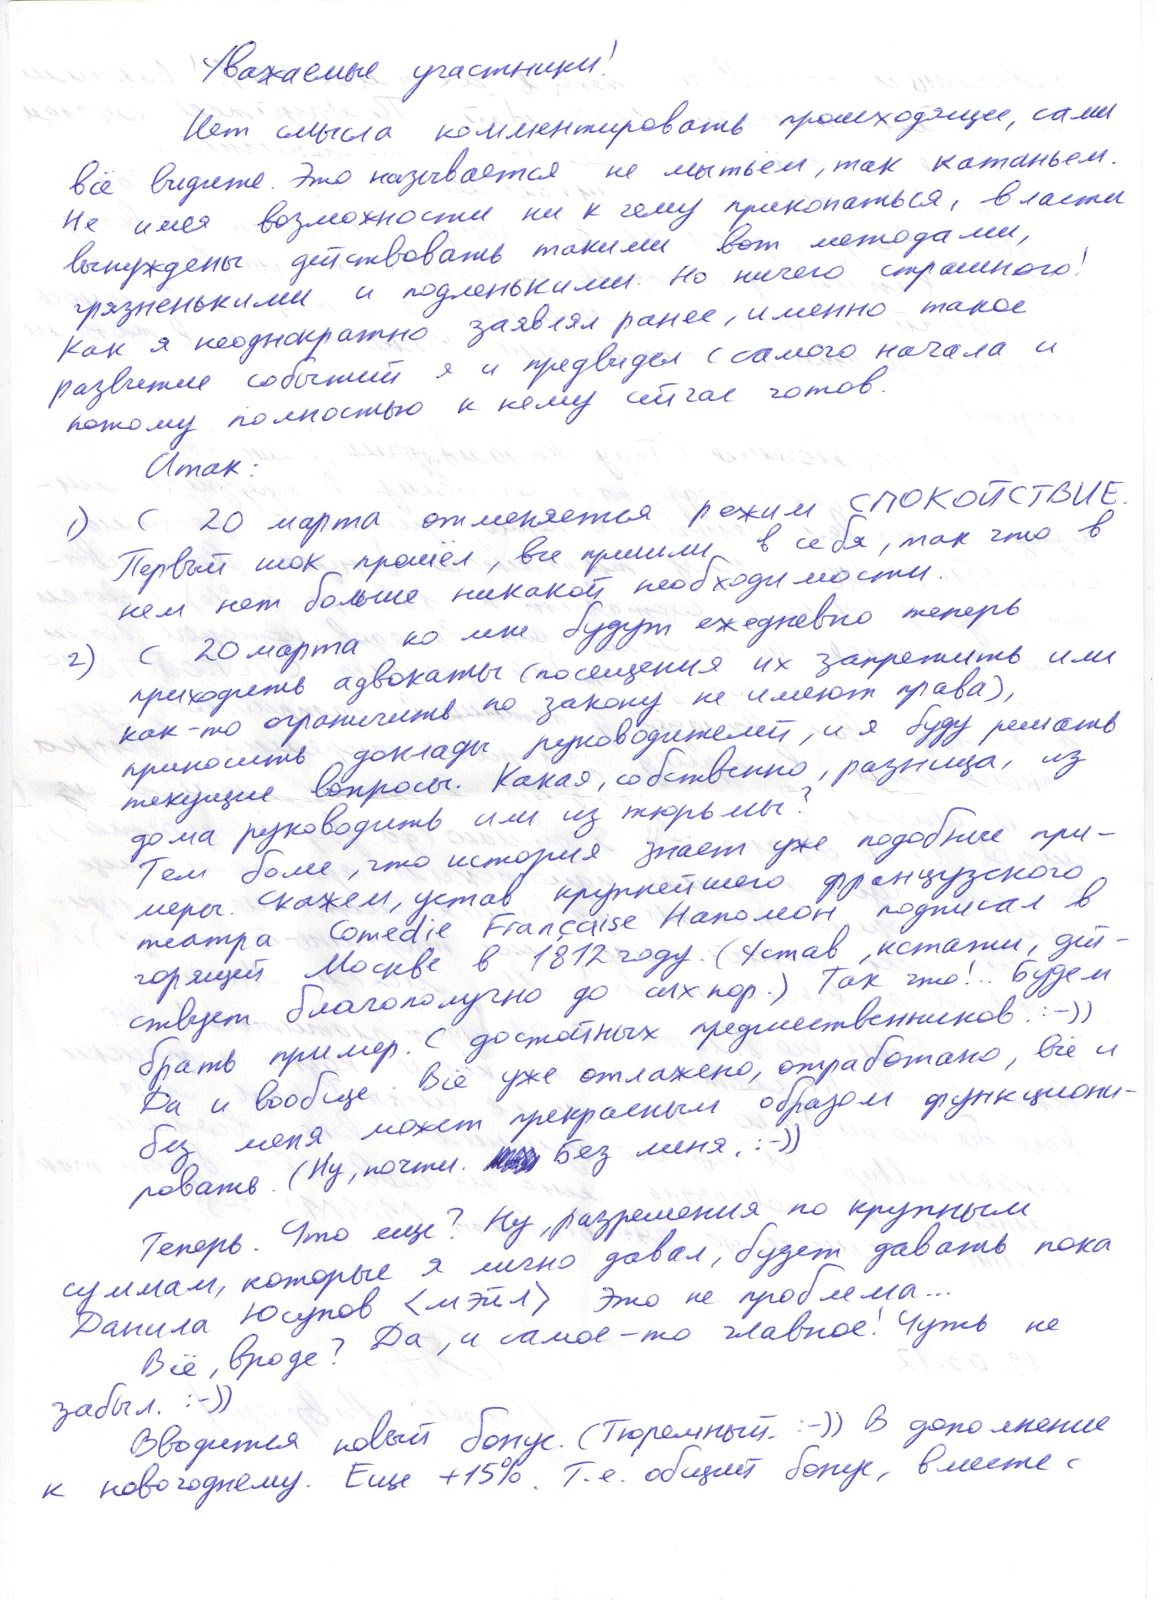 Уважаемые участники!
Нет смысла комментировать происходящее, сами
всё видите. Это называется не мытьём, так катаньем.
Не имея возможности ни к чему прикопаться, власти
вынуждены действовать такими вот методами,
грязненькими и подленькими. Но ничего страшного!
Как я неоднократно заявлял ранее, именно такое
развитие событий я и предвидел с самого начала и
потому полностью к нему сейчас готов.
Итак:
1) С 20 марта отменяется режим СПОКОЙСТВИЕ.
Первый шок прошёл, все пришли в себя, так что в
нем нет больше никакой необходимости.
2) С 20 марта ко мне будут ежедневно теперь
приходить адвокаты (посещения их запретить или
как-то ограничить по закону не имеют права),
приносить доклады руководителей, и я буду решать
текущие вопросы. Какая, собственно, разница, из
дома руководить или из тюрьмы?
Тем более, что история знает уже подобные при-
меры. Скажем, устав крупнейшего французского
театра Comedie Française Наполеон подписал в
горящей Москве в 1812 году. (Устав, кстати, дей-
ствует благополучно до сих пор.) Так что!.. Будем
брать пример. С достойных предшественников. :-))
Да и вообще. Всё уже отлажено, отработано, всё и
без меня может прекрасным образом функциони-
ровать. (Ну, почти. Без меня. :-))
Теперь. Что еще? Ну, разрешения по крупным
суммам, которые я лично давал, будет давать пока
Данила Юсупов <мэйл> Это не проблема...
Всё, вроде? Да, и самое-то главное! Чуть не
забыл. :-))
Вводится новый бонус. (Тюремный. :-)) В дополнение
к новогоднему. Еще +15%. Т.е. общий бонус, вместе с